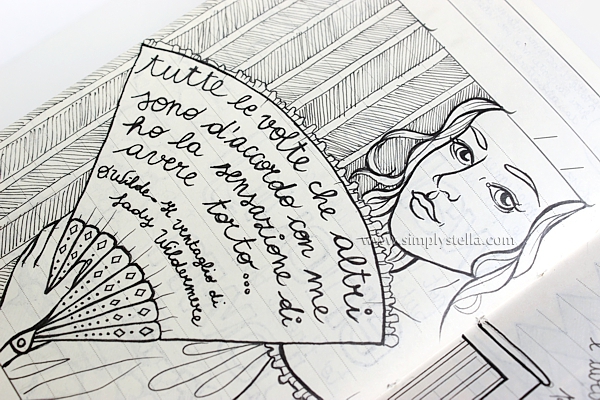 tutte le volte che altri
sono d'accordo con me
ho la sensazione di
avere torto...
O.Wilde - Il ventaglio di
Lady Windermere
www.simplystella.com